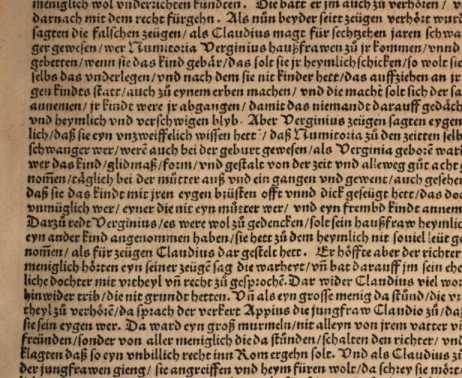 meniglich wol vnderꝛichten kündten. Die batt er jm auch zů verhören /
darnach mit dem recht fürgehn. Als nůn beyder seitt zeügen verhöꝛt wurd
sagten die falschen zeügen / als Claudius magt für sechtzehen jaren schwa
ger gewesen / wer Numitoria Verginius haußfrawen zů jr kommen / vnnd
gebetten / wenn sie das kind gebär / das solt sie jr heymlich schicken / so wolt sie
selbs das vnderlegen / vnd nach dem sie nit kinder hett / das auffziehen an jr
gen kindts statt / auch zů eynem erben machen / vnd die macht solt sich der sa
annemen / jr kindt were jr abgangen / damit das niemandt darauff gedäch
vnd heymlich vnd verschwigen blyb. Aber Verginius zeügen sagten eygen
lich / daß sie eyn vnzweiffelich wissen hett / daß Numitoria zů den zeitten selb
schwanger wer / werē auch bei der geburt gewesen / als Verginia geborē war
wer das kind / glidmaß / form / vnd gestalt von der zeyt vnd alleweg gůt acht
nommen / täglich bei der můtter auß vnd ein gangen vnd gewent / auch gesehen
daß sie das kindt mit jren eygen brüsten offt vnnd dick geseügt hett / das doch
vnmüglich wer / eyner die nit eyn můtter wer / vnd eyn frembd kindt annem
Darzů redt Verginius / es were wol zů gedencken / solt sein haußfraw heymlich
eyn ander kind angenommen haben / sie hett zů dem heymlich nit souiel leüt ge
nommen / als für zeügen Claudius dar gestelt hett. Er hoffte aber der richter
meniglich höꝛten eyn seiner zeügē sag die warheyt / vñ bat darauff jm sein ehe
liche dochter mit vꝛtheyl vñ recht zů gesprochē. Dar wider Claudius viel wor
hinwider trib / die nit grundt hetten. Vñ als eyn grosse menig da stůnd / die vꝛ
theyl zů verhöꝛē / da sprach der verkert Appius die jungfraw Claudio zů / daß
sie sein eygen wer. Da ward eyn groß murmeln / nit alleyn von jrem vatter vñ
freünden / sonder von aller meniglich die da stůnden / schalten den richter / vnd
klagten daß so eyn vnbillich recht inn Rom ergehn solt. Vnd als Claudius zů
der jungfrawen gieng / sie angreiffen vnd heym füren wolt / da schrey sie mört